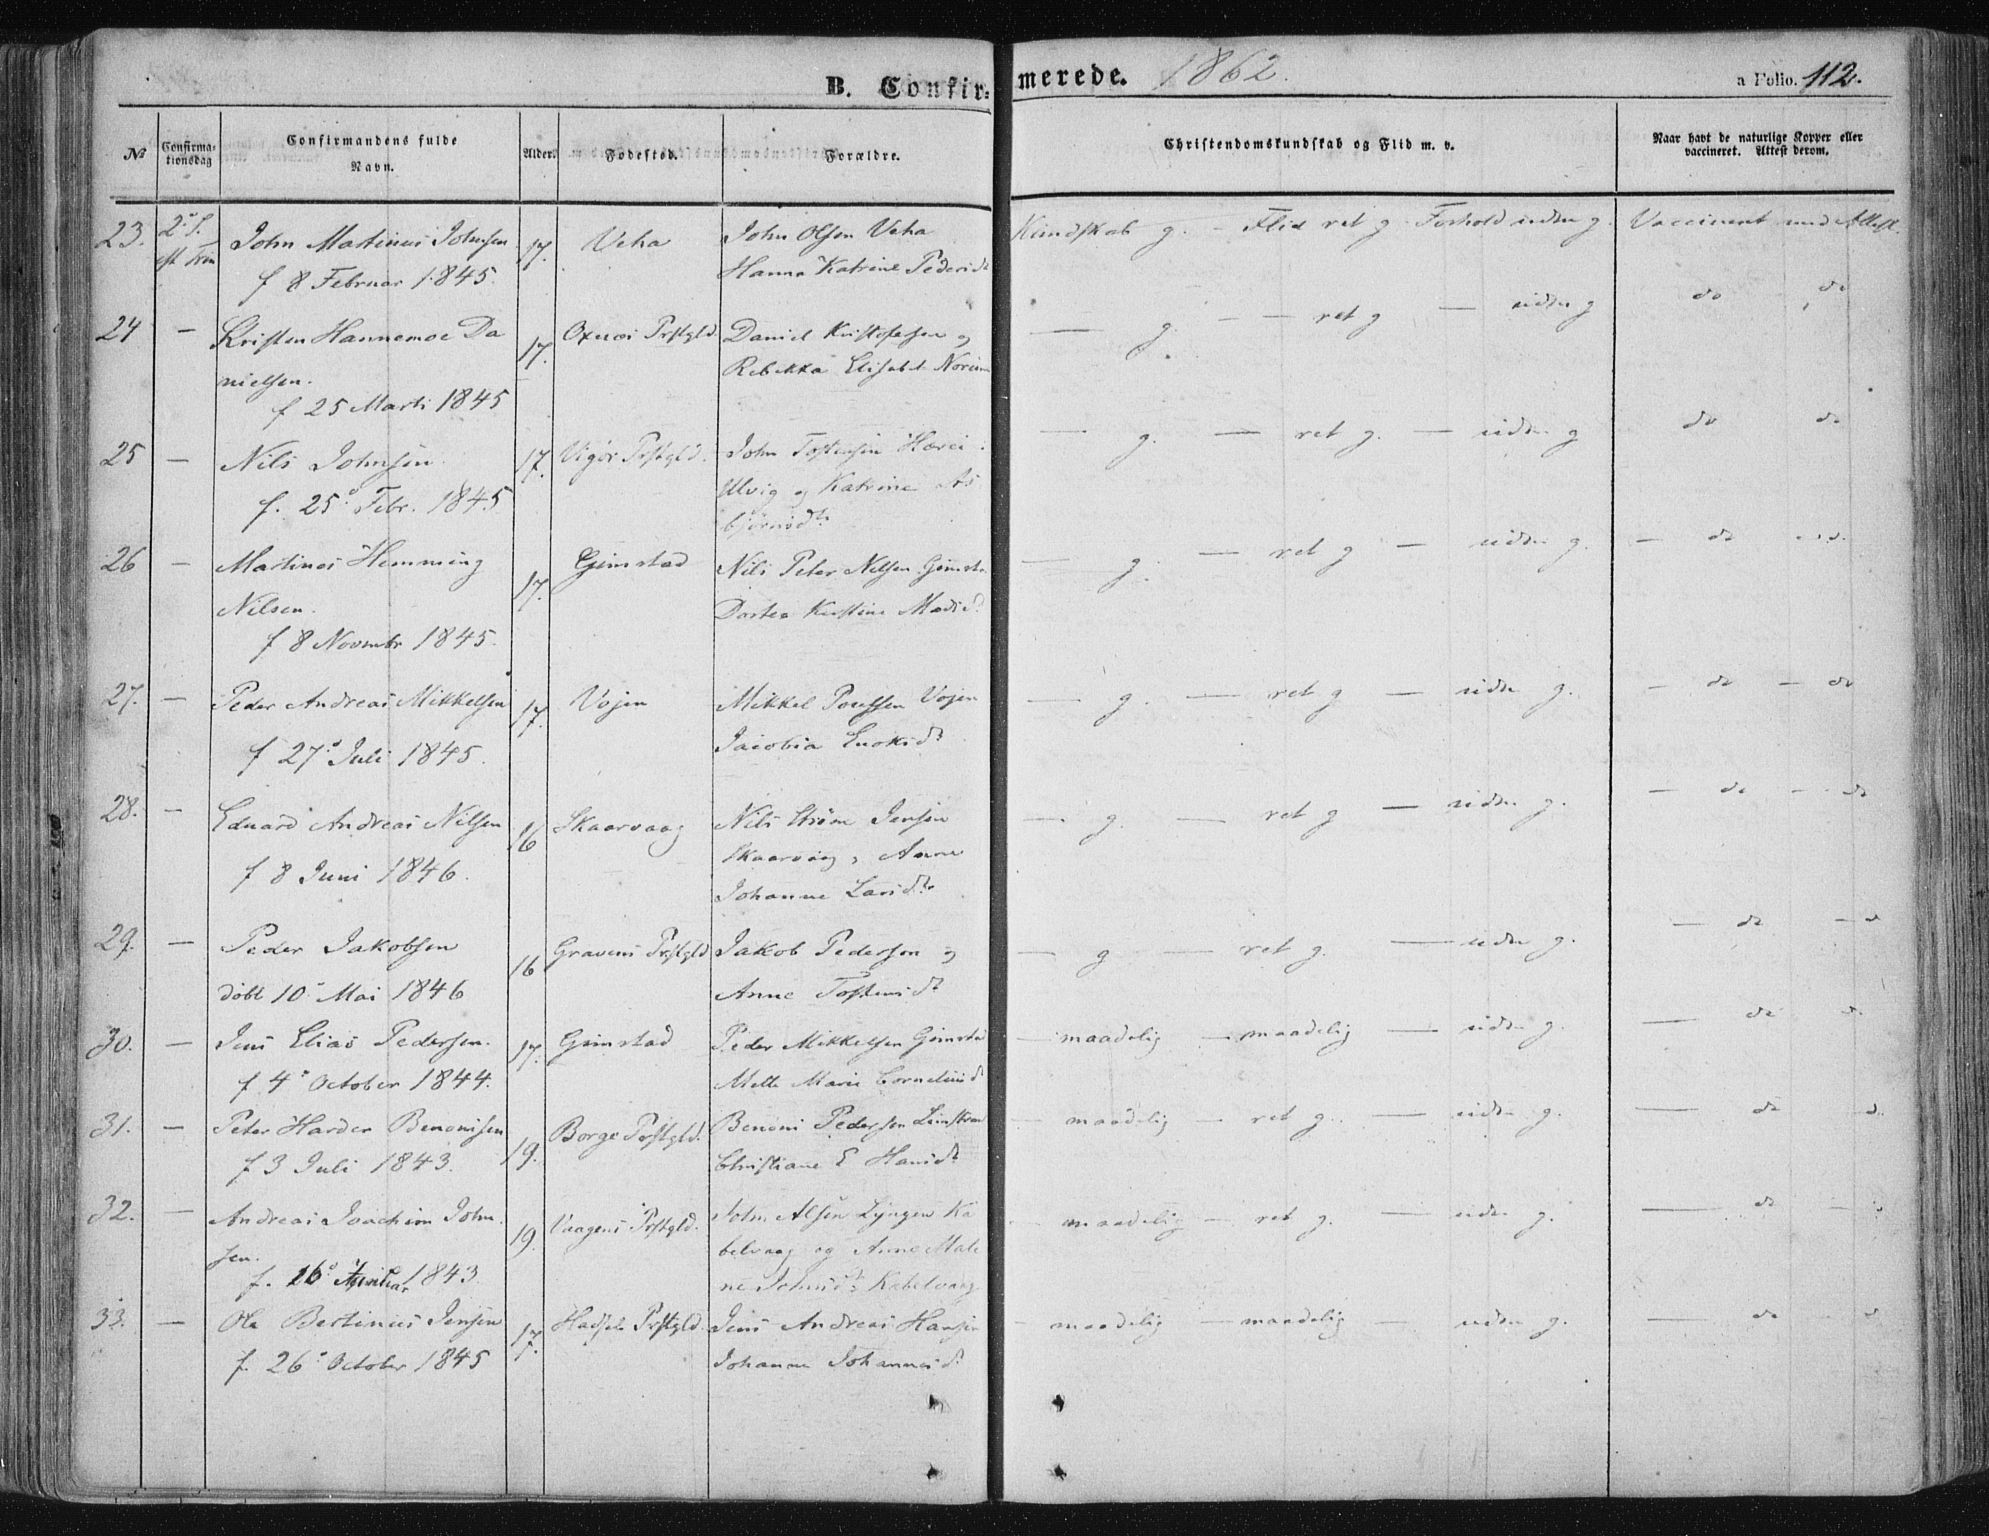 B. Confir=merede. 1862. a Folio. 112.
No Confirma-tionsdag Confirmandens fulde Navn. Alder. Fødested. Forældre. Christendomskundskab og Flid m. v. Naar havt de naturlige Kopper eller vaccineret. Attest derom.
23. 2. S. John Martinus Johnsen 17. Veha John Olsen Veha Kundskab g. - Flid ret g - Forhold uden g. Vaccineret med Attest.
f 8 Februar 1845. Hanna Katrine Pedersd
24 - Kristen Hannemoe Da 17. Prstgld Daniel Kristofersen og - g. - ret g - uden g do do
nielsen. Rebekka Elisabet
f 25 Marti 1845
25 - Nils Johnsen 17. Vigør Prstgld. John Tostensen - g. - ret g. - uden g do do
f. 25 Febr. 1845 Ulvig og Katrine As
bjørnsdtr
26 - Martinus Hemming 17. Gimstad Nils Peter Nilsen Gimsta - g. - ret g - uden g. - do
Nilsen. Dortea Kirstine Madsd.
f 8 Novembr 1845.
27. - Peder Andreas Mikkelsen 17. Vojen Mikkel Poulsen Vojen - g. - ret g - uden g. - do - do
f 27 Juli 1845. Jacobia Enoksdr
28. - Eduard Andreas Nilsen 16 Skaarvaag Nils Strøm Jensen - g. - ret g - uden g. - do - do
f 8 Juni 1846. Skaarvaag, Anne
Johanne Larsdtr
29. - Peder Jakobsen 16 Gravens Prstgld Jakob Pedersen og - g - ret g. - uden g. - do - d
døbt 10 Mai 1846 Anne Tostensdr
30. - Jens Elias Pedersen. 17. Gimstad Peder Mikkelsen Gimsta - maadelig - maadelig - uden g. - do d.
f 4 October 1844. Mette Marie Corneliusd
31. - Peter Harder Benonisen 19. Borge Prstgld. Benoni Pedersen - maadelig - ret g. - uden g. - do d.
f 3 Juli 1843. Christiane E Hansdr
32. - Andreas Joachim John 19. Vaagens Prstgld. John Alsen Lyngen Ka - maadelig - ret g. - uden g. - do
sen. belvaag og Anne Male
f. 26 1843. ne Johnsdr Kabelvaag
33. - Ole Bertinus Jensen 17. Hadsels Prstgld. Jens Andreas Hansen - maadelig - maadelig - uden g. - do d
f. 26 October 1845 Johanne Johannesd